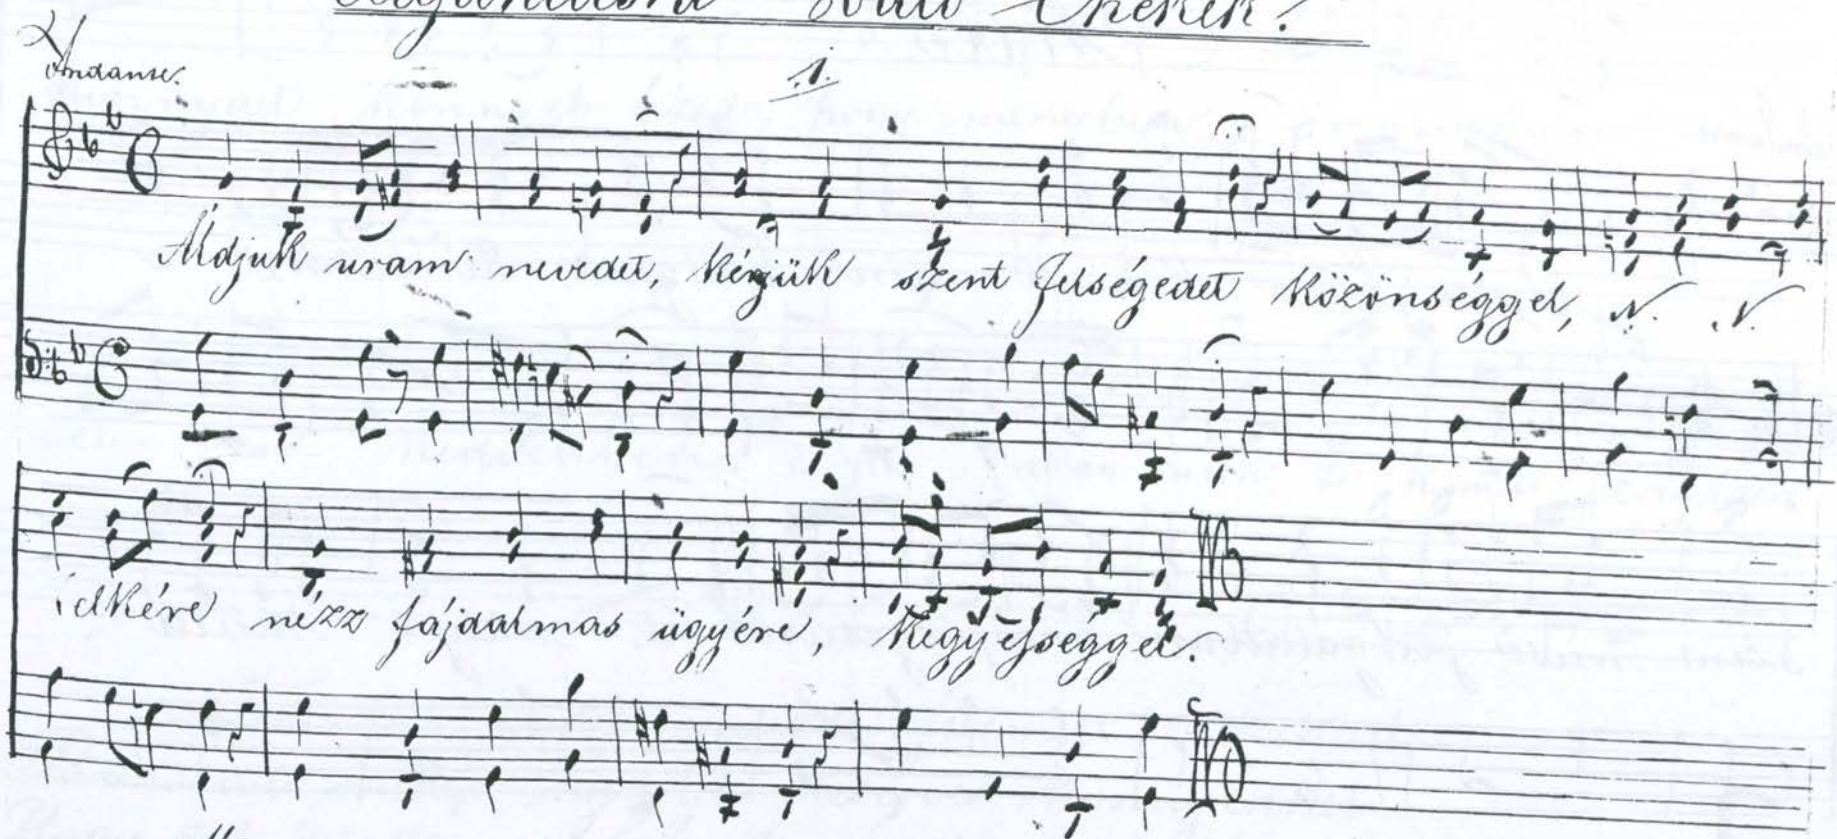 Énekek!
Andante.
1.
Áldjuk uram nevedet, kérjük szent Felségedet közönséggel, N. N.
lelkére nézz fájdalmas ügyére, kegyességgel.